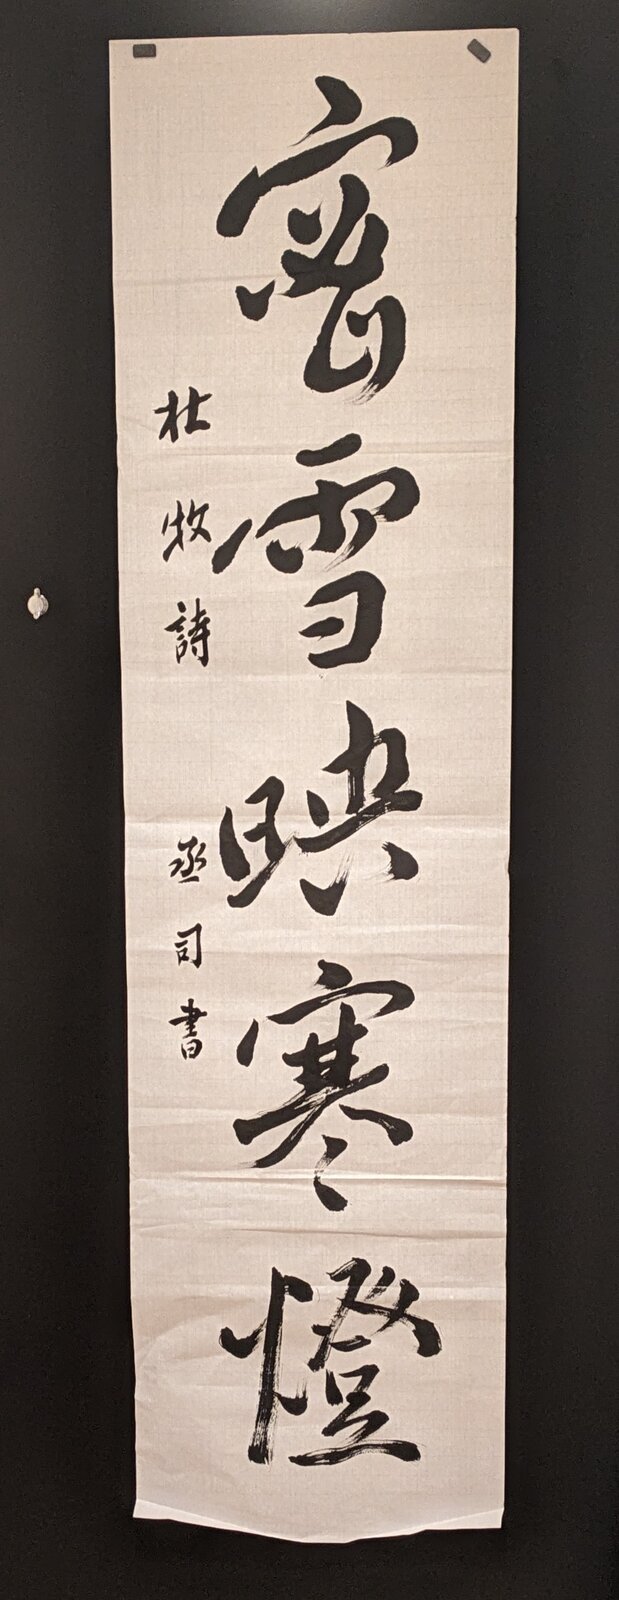 密雪映寒燈
杜牧詩 丞司書